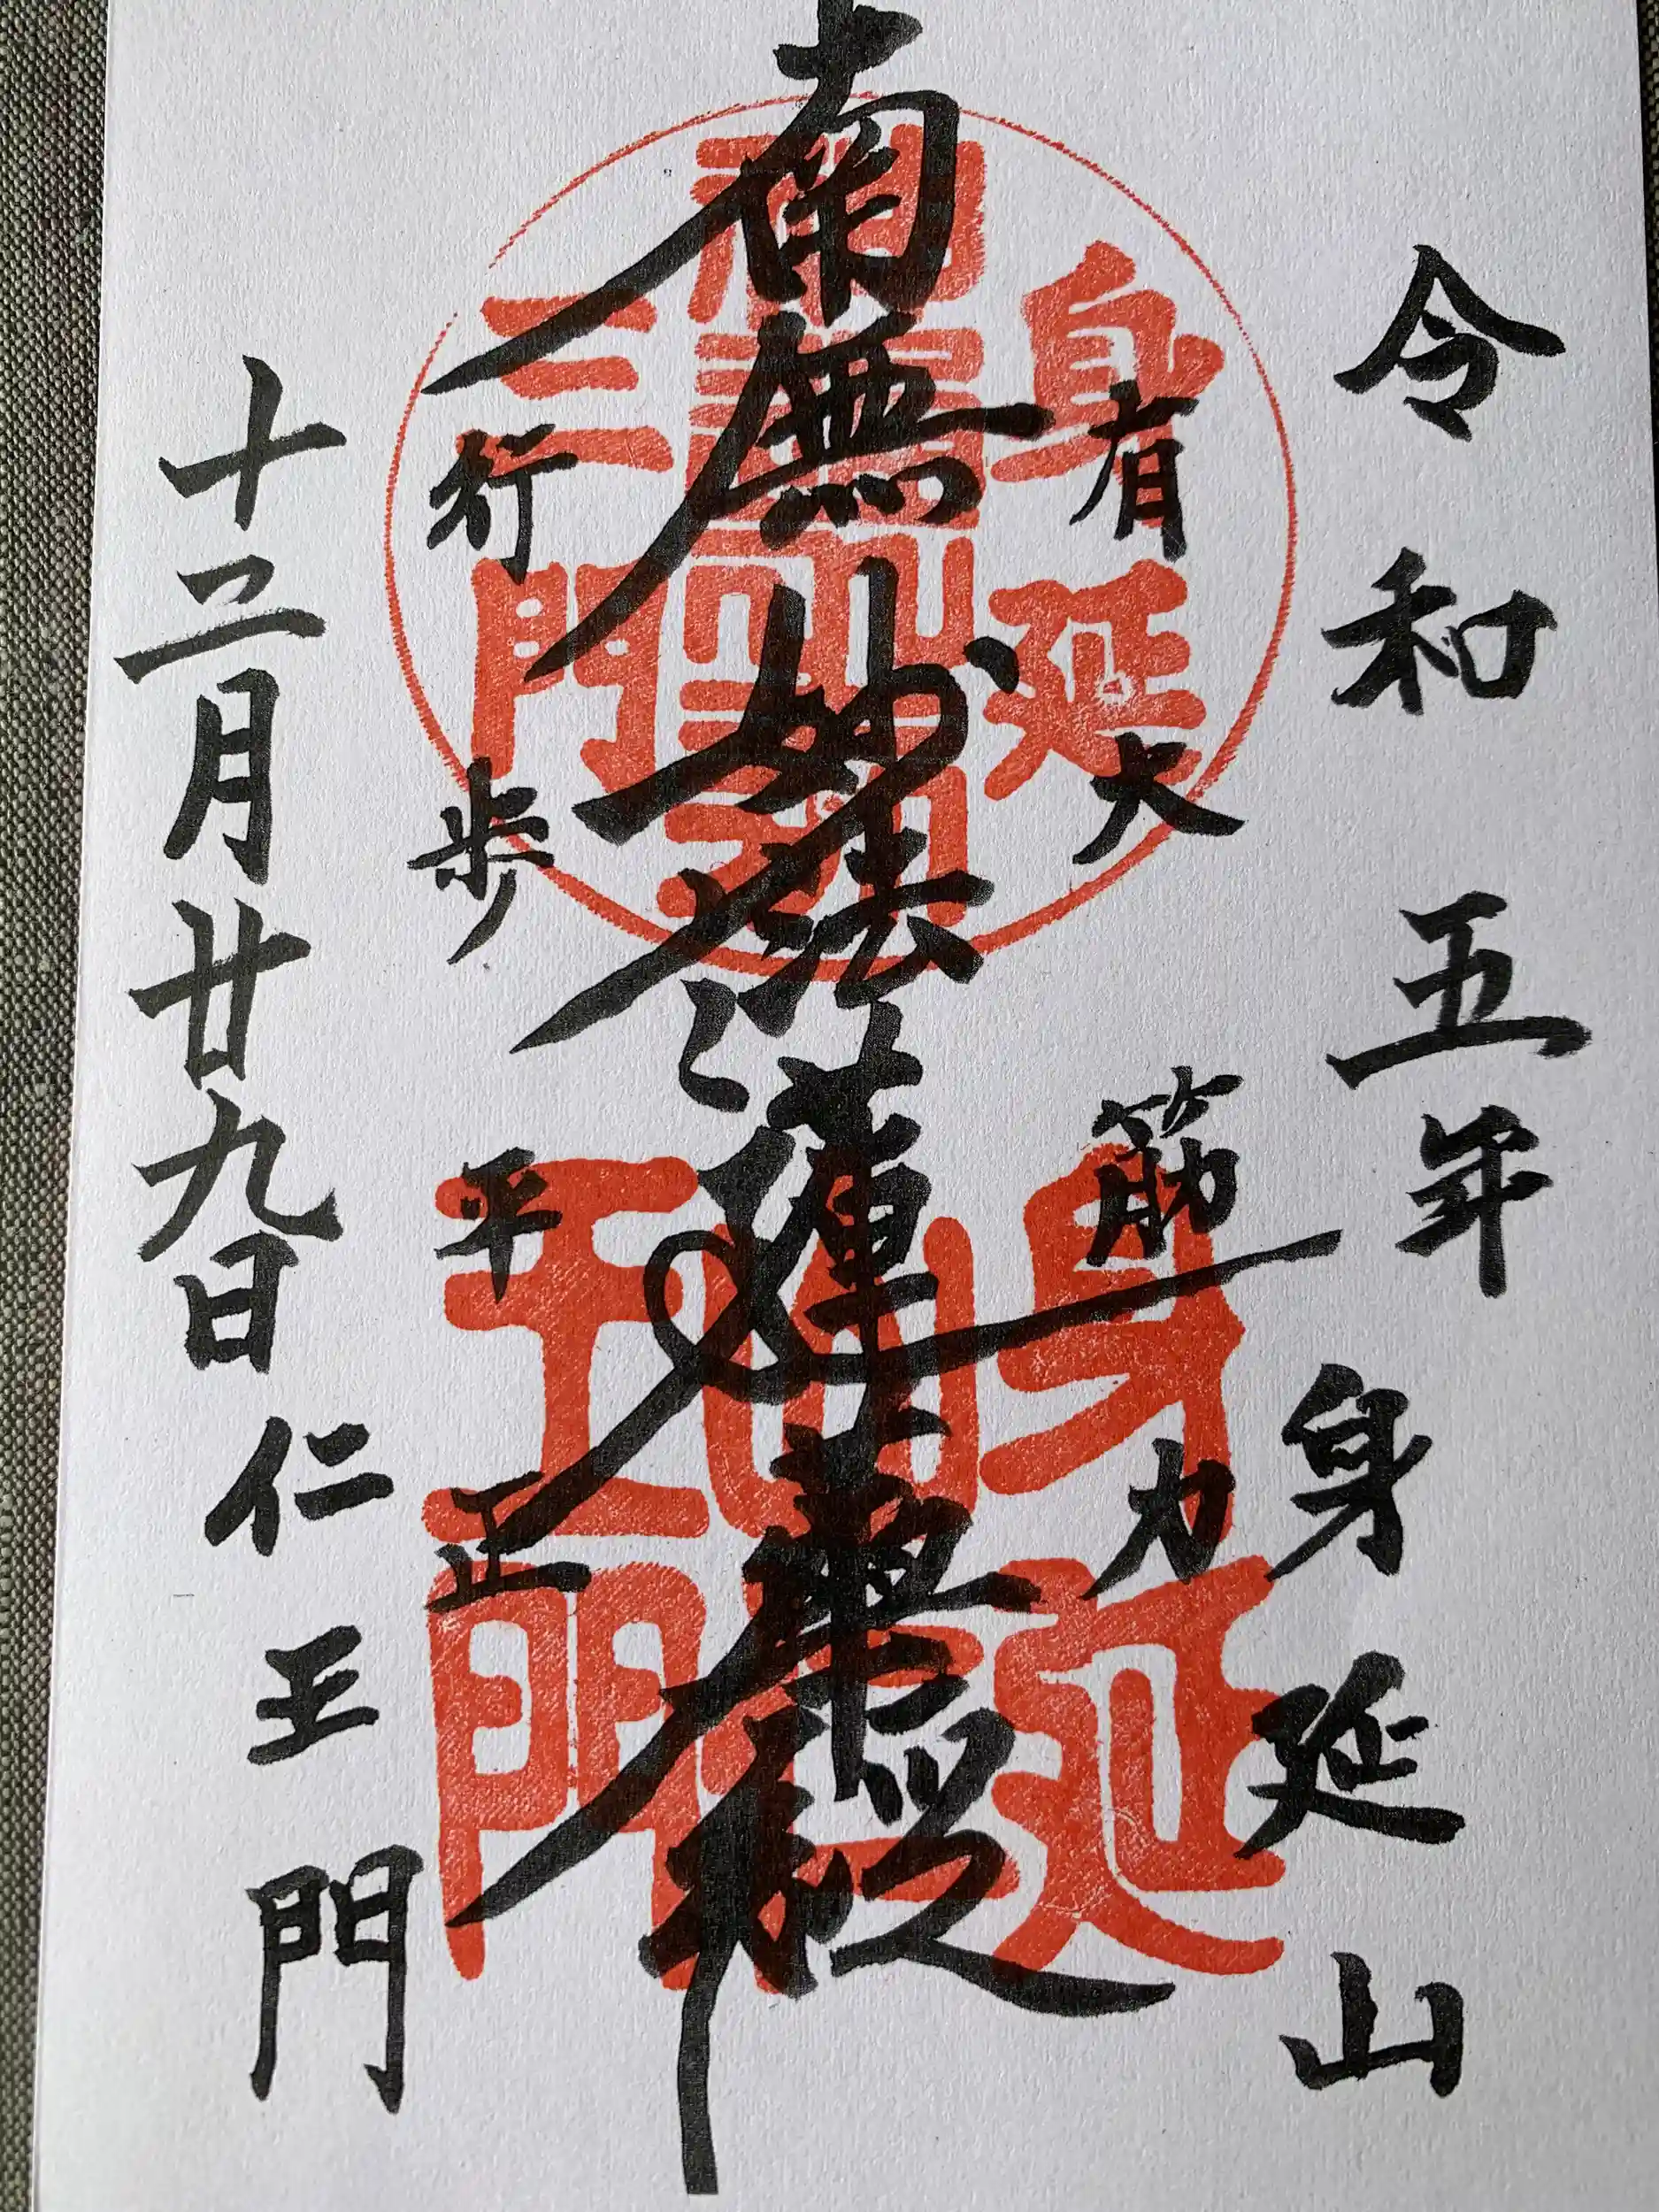 令和五年 身延山
有大筋力
南無妙法蓮華経
行歩平正
十二月廿九日 仁王門
身延
三門
身延
王門